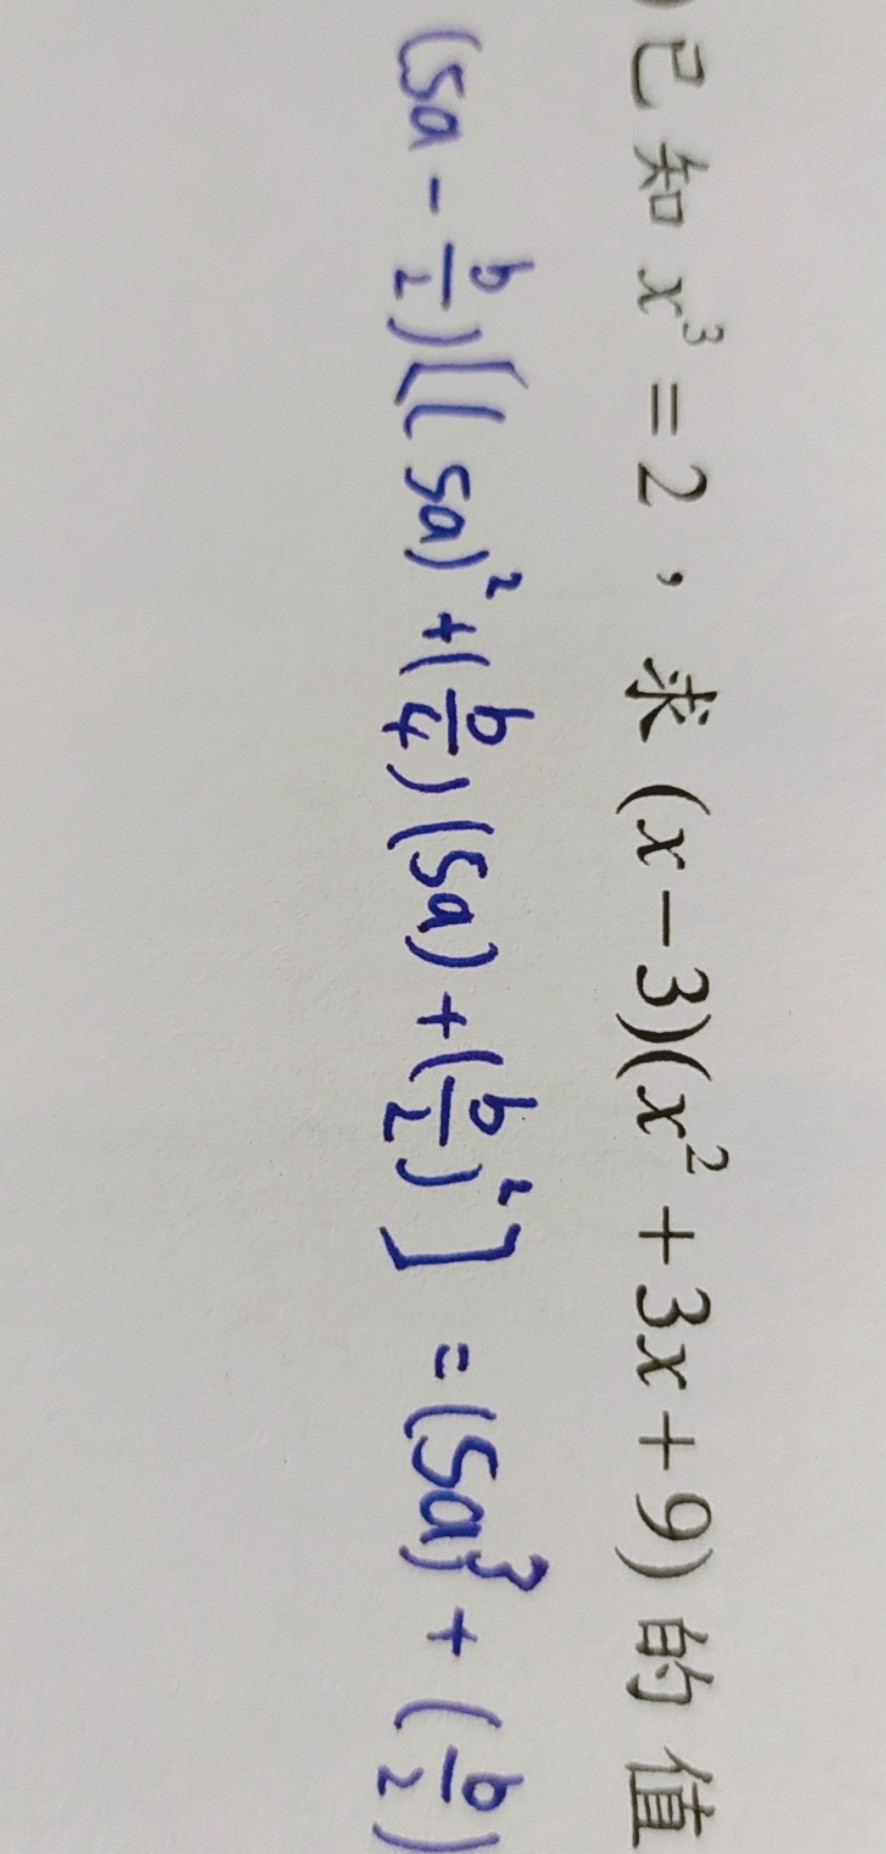 )已知 x³ = 2，求 (x－3)(x² + 3x + 9) 的值
(5a - b/2)[(5a)² + (b/4)(5a) + (b/2)²] = (5a)³ + (b/2)